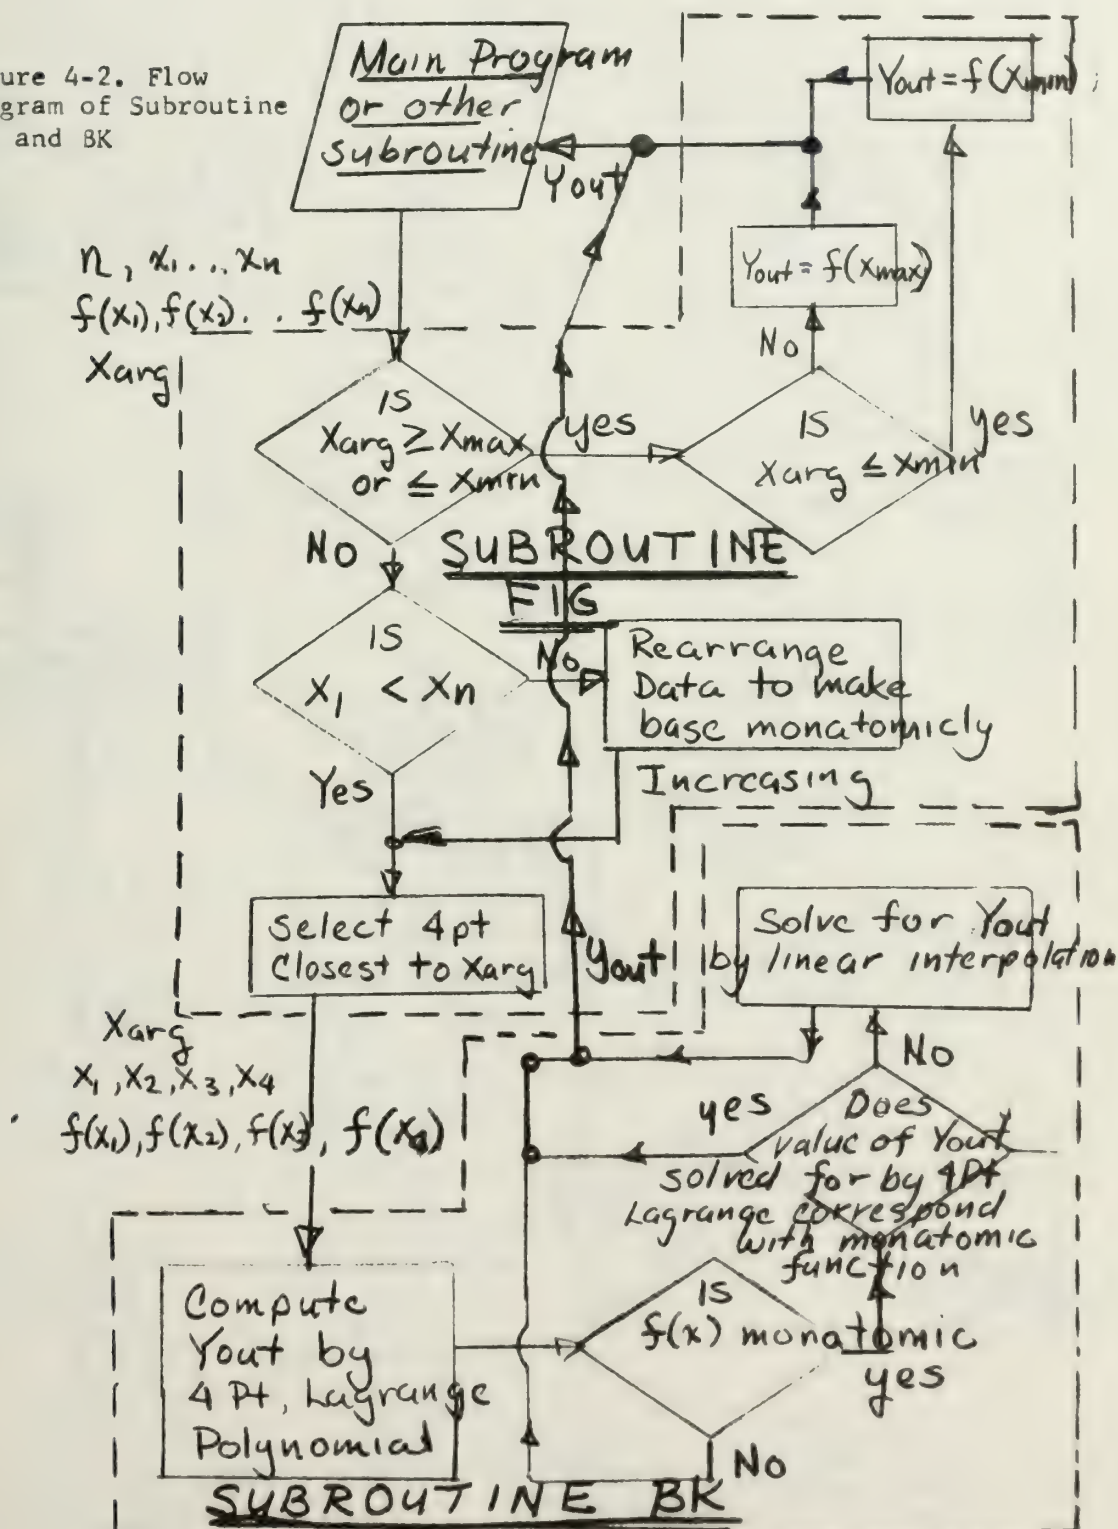 ure 4-2. Flow
gram of Subroutine
and BK
Main Program
or other
subroutine
Yout
Yout = f(Xmin)
Yout = f(Xmax)
n, x1 ... xn
f(x1), f(x2) . . f(xn)
Xarg
IS
Xarg ≥ Xmax
or ≤ Xmin
yes
No
IS
Xarg ≤ Xmin
yes
No
SUBROUTINE
FIG
IS
X1 < Xn
No
Rearrange
Data to make
base monatomicly
Increasing
Yes
Select 4pt
Closest to Xarg
Yout
Solve for Yout
by linear interpolation
Xarg
X1, X2, X3, X4
f(x1), f(x2), f(x3), f(x4)
No
yes
Does
value of Yout
solved for by 4Pt
Lagrange correspond
with monatomic
function
Compute
Yout by
4 Pt, Lagrange
Polynomial
IS
f(x) monatomic
yes
No
SUBROUTINE BK